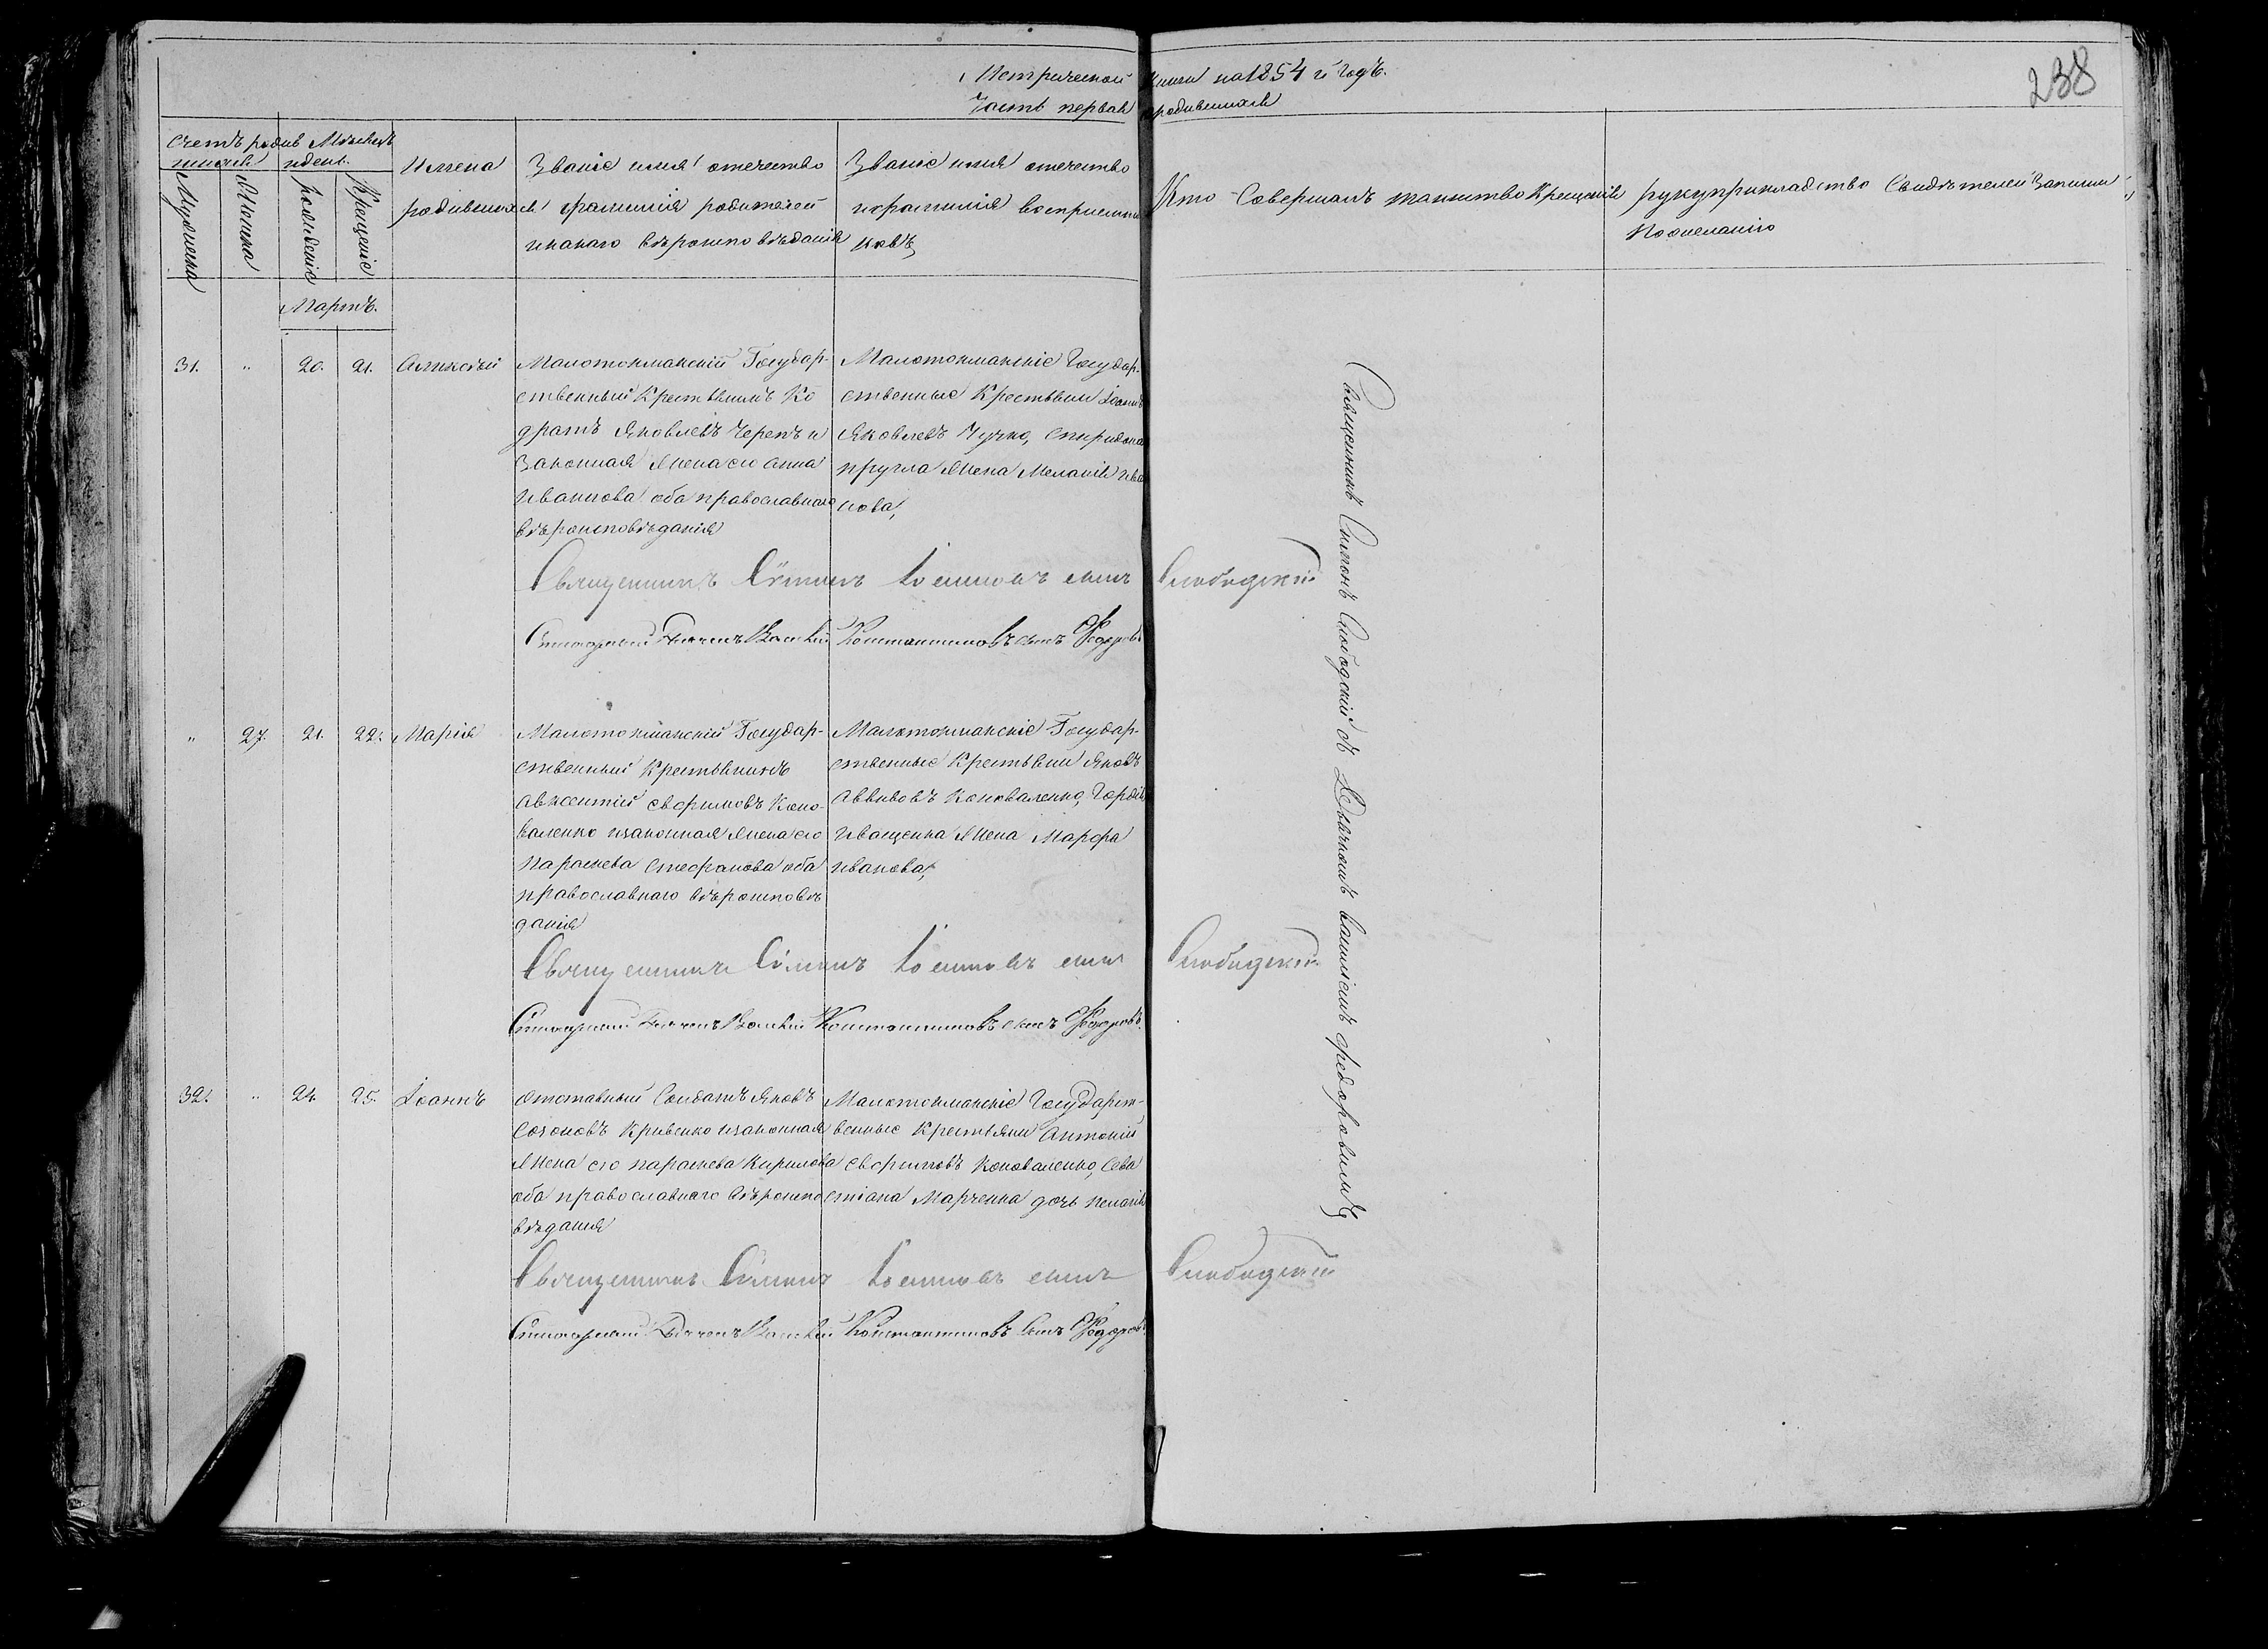 Метрической книги на 1854 й годъ.
Часть первая о родившихся
238
Счетъ родив
шихся
Мѣсяцъ
и день.
Мужеска
Женска
Рожденіе
Крещеніе
Имена
родившихся
Званіе имя отечество
и фамилія родителей
и какаго вѣроисповѣданія
Званіе имя отечество
и фамилія воспріемни
ковъ,
Кто Совершалъ таинство Крещенія
рукуприкладство Свидѣтелей Записи
По желанію
Мартъ.
31. „ 20. 21. Алексѣй
Малотокмакскій Государ-
ственный Крестьянинъ Ко
дратъ Яковлевъ Черепъ и
Законная Жена его Анна
Иванова оба православнаго
вѣроисповѣданія
Малотокмакскіе Государ-
ственные Крестьяни Іоаннъ
Яковлевъ Чучко, Спиридона
пругла Жена Меланія Ива
нова,
Священникъ Сѵмеонъ Іоанновъ сынъ Слободскій
Стихарный Дьячекъ Василій Константиновъ сынъ Федоровъ
„ 27. 21. 22. Марія
Малотокмакскій Государ-
ственный Крестьянинъ
Авксентій Ефимовъ Коно-
валенко и законная Жена его
Параскева Стефанова оба
православнаго вѣроисповѣ
данія
Малотокмакскіе Государ-
ственные Крестьяни Яковъ
Аввивовъ Коноваленко, Гордѣя
Иващенка Жена Марфа
Иванова,
Священникъ Сѵмеонъ Іоанновъ сынъ Слободскій
Стихарный Дьячекъ Василій Константиновъ сынъ Федоровъ.
32. „ 24. 25. Іоаннъ
Отставный Солдатъ Яковъ
Созоновъ Кривенко и законная
Жена его Параскева Кирилова
оба православнаго вѣроиспо
вѣданія
Малотокмакскіе Государст-
венные Крестьяни Антоній
Ефимовъ Коноваленко, Сева
стіана Марченка дочь Пелагія
Священникъ Сѵмеонъ Іоанновъ сынъ Слободскій
Стихарный Дьячекъ Василій Константиновъ Сынъ Федоровъ
Священникъ Симеонъ Слободскій съ Дьячкомъ Василіемъ Федоровымъ